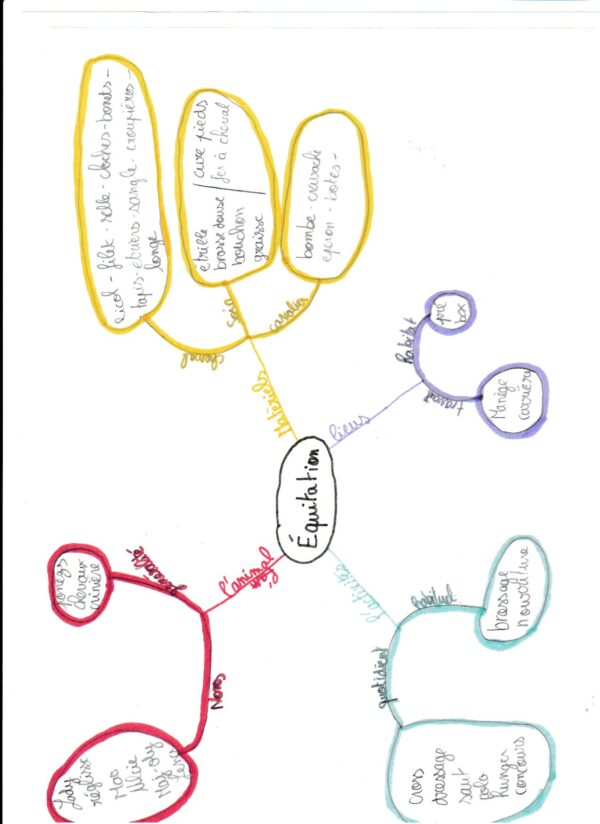 Équitation
Matériels
cheval
licol - filet - selle - cloches - bonets -
tapis - étriers - sangle - croupières -
longe
soin
étrille
brosse douse
bouchon
graisse
cure pieds
fer à cheval
cavalier
bombe - cravache
eperon - botes -
lieux
habitat
pré
box
travail
Manège
carrière
l'activités
habituel
bressage
nourriture
quotidient
cross
dressage
saut
polo
hunger
concours
l'animal
généralité
chevaux
crinière
Noms
Lady
réglisse